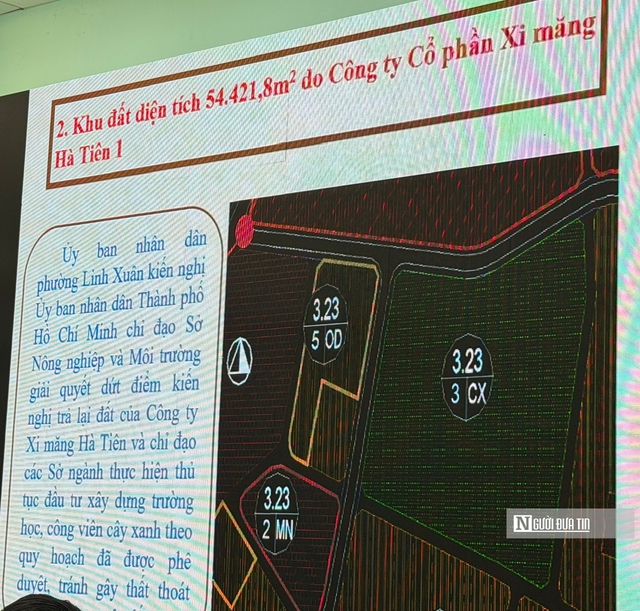 2. Khu đất diện tích 54.421,8m² do Công ty Cổ phần Xi măng
Hà Tiên 1
Ủy ban nhân dân
phường Linh Xuân kiến nghị
Ủy ban nhân dân Thành phố
Hồ Chí Minh chỉ đạo Sở
Nông nghiệp và Môi trường
giải quyết dứt điểm kiến
nghị trả lại đất của Công ty
Xi măng Hà Tiên và chỉ đạo
các Sở ngành thực hiện thủ
tục đầu tư xây dựng trường
học, công viên cây xanh theo
quy hoạch đã được phê
duyệt, tránh gây thất thoát
3.23
5 OD
3.23
3 CX
3.23
2 MN
NGƯỜI ĐƯA TIN